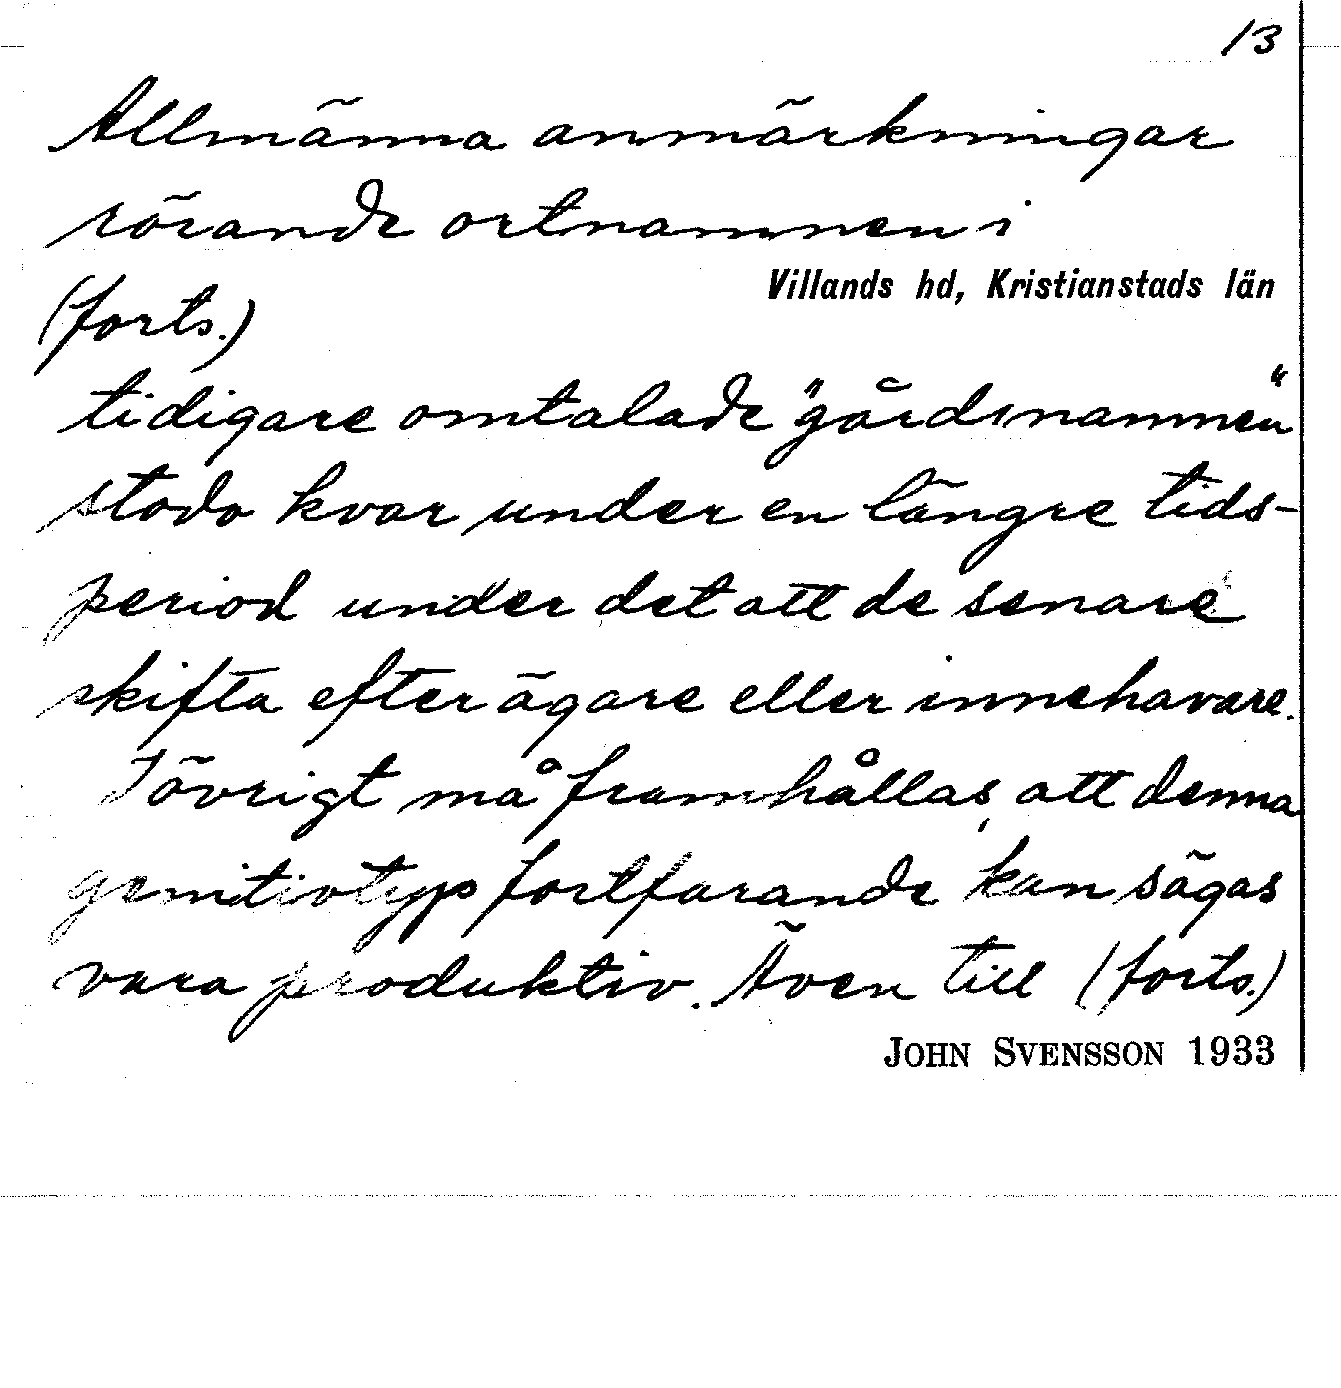 13
Allmänna anmärkningar
rörande ortnamnen i
Villands hd, Kristianstads län
(forts.)
tidigare omtalade "gårdsnamnen"
stodo kvar under en längre tids-
period under det att de senare
skifta efter ägare eller innehavare.
I övrigt må framhållas, att denna
genitivtyp fortfarande kan sägas
vara produktiv. Även till (forts.)
JOHN SVENSSON 1933